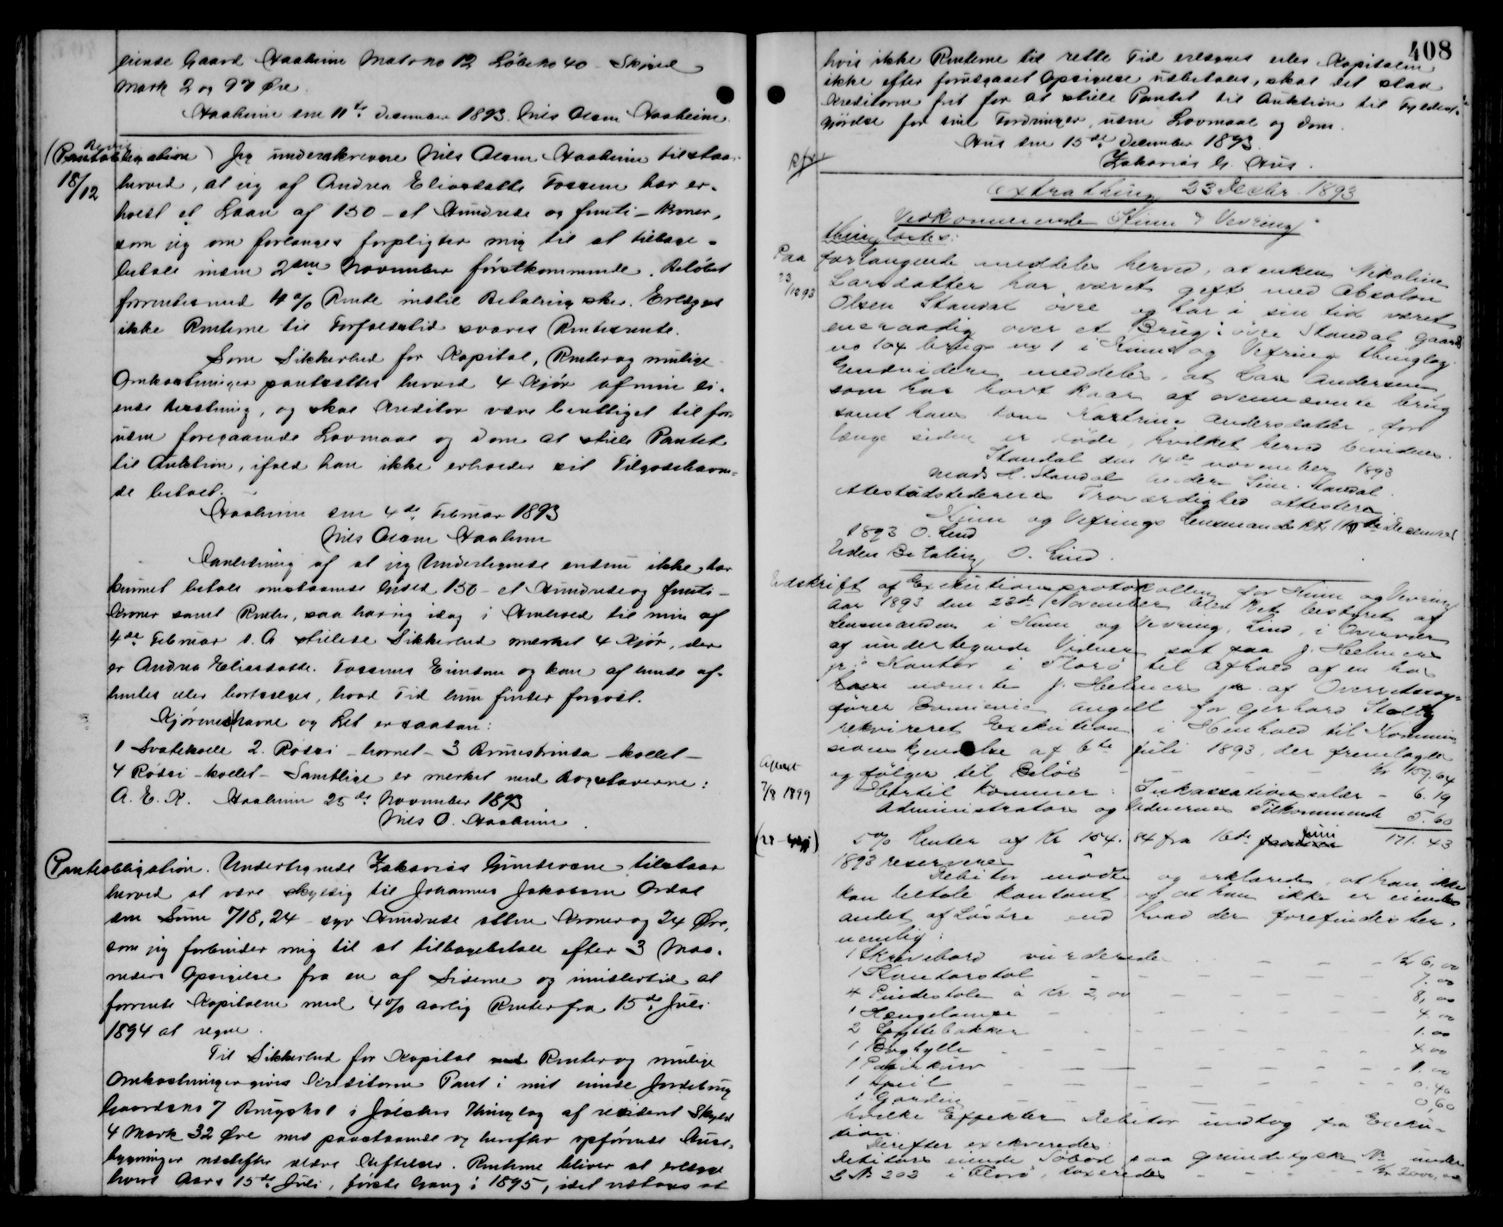 eiende Gaard Haaheim Mat. no 12 Löbeno 40 Skyld
Mark 2 og 97 Øre.
Haaheim den 11te December 1893. Nils Olsen Haaheim.
(Pantobligation) Jeg underskrevne Nils Olsen Haaheim tilstaar
18/12
herved, at jeg af Andrea Eliasdatter Fossum har er-
holdt et Laan af 150 - et Hundrede og femti - Kroner,
som jeg om forlanges forpligter mig til at tilbage-
betale inden 2den November förstkommende. Beløbet
forrentes med 4 % Rente indtil Betaling sker. Erlægges
ikke Renterne til Forfaldstid svares Rentesrente.
Som Sikkerhed for Kapital, Renter og mulige
Omkostninger pantsættes herved 4 Kjør af min ei-
ende besætning, og skal Kreditor være berettiget til for-
uden foregaaende Lovmaal og Dom at stille Pantet
til Auktion, ifald han ikke erholder sit Tilgodehaven-
de betalt.
Haaheim den 4de Februar 1893
Nils Olsen Haaheim
I anledning af at jeg Undertegnede endnu ikke har
kunnet betale omstaaende Gjæld 150 - et Hundrede og femti -
Kroner samt Renter, saa har jeg idag i Henhold til min af
4de Februar d. A. stillede Sikkerhed mærket 4 Kjør, der
er Andrea Eliasdatter Fossums Eiendom og kan af hende af-
hentes eller bortsælges, hvad Tid hun finder for godt.
Kjørenes Navne og Let er saadan:
1 Svartkolle 2. Røssi - hornet - 3 Brunstrinda - kollet -
4 Røssi - kollet - Samtlige er merket med Bogstaverne:
A. E. F. Haaheim 25de November 1893
Nils O. Haaheim.
Pantobligation. Undertegnede Zakarias Gundersen tilstaar
herved at være skyldig til Johannes Jakobsen Ordal
den Sum 718,24 - syv Hundrede atten Kroner og 24 Øre,
som jeg forbinder mig til at tilbagebetale efter 3 Maa-
neders Opsigelse fra en af Siderne og imidlertid at
forrente Kapitalen med 4 % aarlig Renter fra 15de Juli
1894 at regne.
Til Sikkerhed for Kapital med Renter og mulige
Omkostninger gives Kreditoren Pant i mit eiende Jordebrug
Gaardsno 7 Brugsno 1 i Jølsters Thinglag af revideret Skyld
4 Mark 32 Øre med paastaaende og herefter opførende Huse
bygninger
Renterne bliver at erlægge
hvert Aars 15de Juli, første Gang i 1895, idet vedtages at
408
hvis ikke Renterne til rette Tid erlægges eller Kapitalen
ikke efter forudgaaet Opsigelse udbetales, skal det staa
Kreditoren frit for at stille Pantet til Auktion til Fyldest-
gjørelse for sine Fordringer, uden Lovmaal og Dom.
Hus den 15de December 1893.
Zakarias G. Hus.
Extrathing 23 Decbr. 1893
Vedkommende Kinn & Vevring
Thinglaster:
Paa forlangende meddeles herved, at enken Nikoline
23/12 93
Larsdatter har været gift med Absalon
Olsen Standal övre og har i sin tid været
eneraadig over et Brug i övre Standal gaards
no 104 brugs no 1 i Kinns og Vefrings thinglag.
Endvidere meddeles, at Lars Andersen,
som har havt Kaar af ovennævnte brug
samt hans kone Katrine Andersdatter for
længe siden er döde, hvilket herved bevidnes.
Standal den 14de november 1893
Mads H. Standal Anders Sim. Standal.
Attestudstedernes Troværdighed attesteres
Kinn og Vefrings Lensmandskt. 11te December
1893 O. Lind
Uden Betaling O. Lind.
Udskrift af Exekutionsprotokollen for Kinn og Vevring
Aar 1893 den 22de November blev Ret bestyret af
Lensmanden i Kinn og Vevring, Lind, i Overvær
af undertegnede Vidner sat paa J. Helmers
jr.s Kontor i Florö til Afhold af en hos
ham nævnte J. Helmers jr. af Overretssag-
fører Angell for Gjerhard Stoltz
rekvireret Exekution i Henhold til Kommis-
sions Kjendelse af 6te juli 1893, der fremlagdes
og følger til Beløb - - - - Kr 159.64
Aflæst 7/8 1899
Hertil kommer: Inkassationssalær - 6.19
Administrators og Vidnernes Tilkommende 5.60
171.43
5 % Renter af Kr 154.84 fra 16de juni
1893 reserveres
Debitor mödte og erklærede, at han ikke
kan betale kontant og at han ikke er eiende
andet af Løsöre end hvad der forefindes her,
nemlig:
1 Skrivebord vurderedes - - - Kr 6,00
1 Kontorstol - - - 7.00
4 Pindestole à Kr 2,00 - - - 8,00
1 Hængelampe - - - 4.00
2 Spyttebakker - - - 1.00
1 Boghylle - - - 4.00
1 Papirkurv - - - 1.00
1 Speil - - - 0.40
1 Gardin - - - 0,60
hvilke Effekter Debitor undtog fra Exeku-
tion.
Derefter exekveredes:
Debitors eiende Söbod paa Grundstykke No under
L No 202 i Florö, taxeredes - - - Kr 2000,00